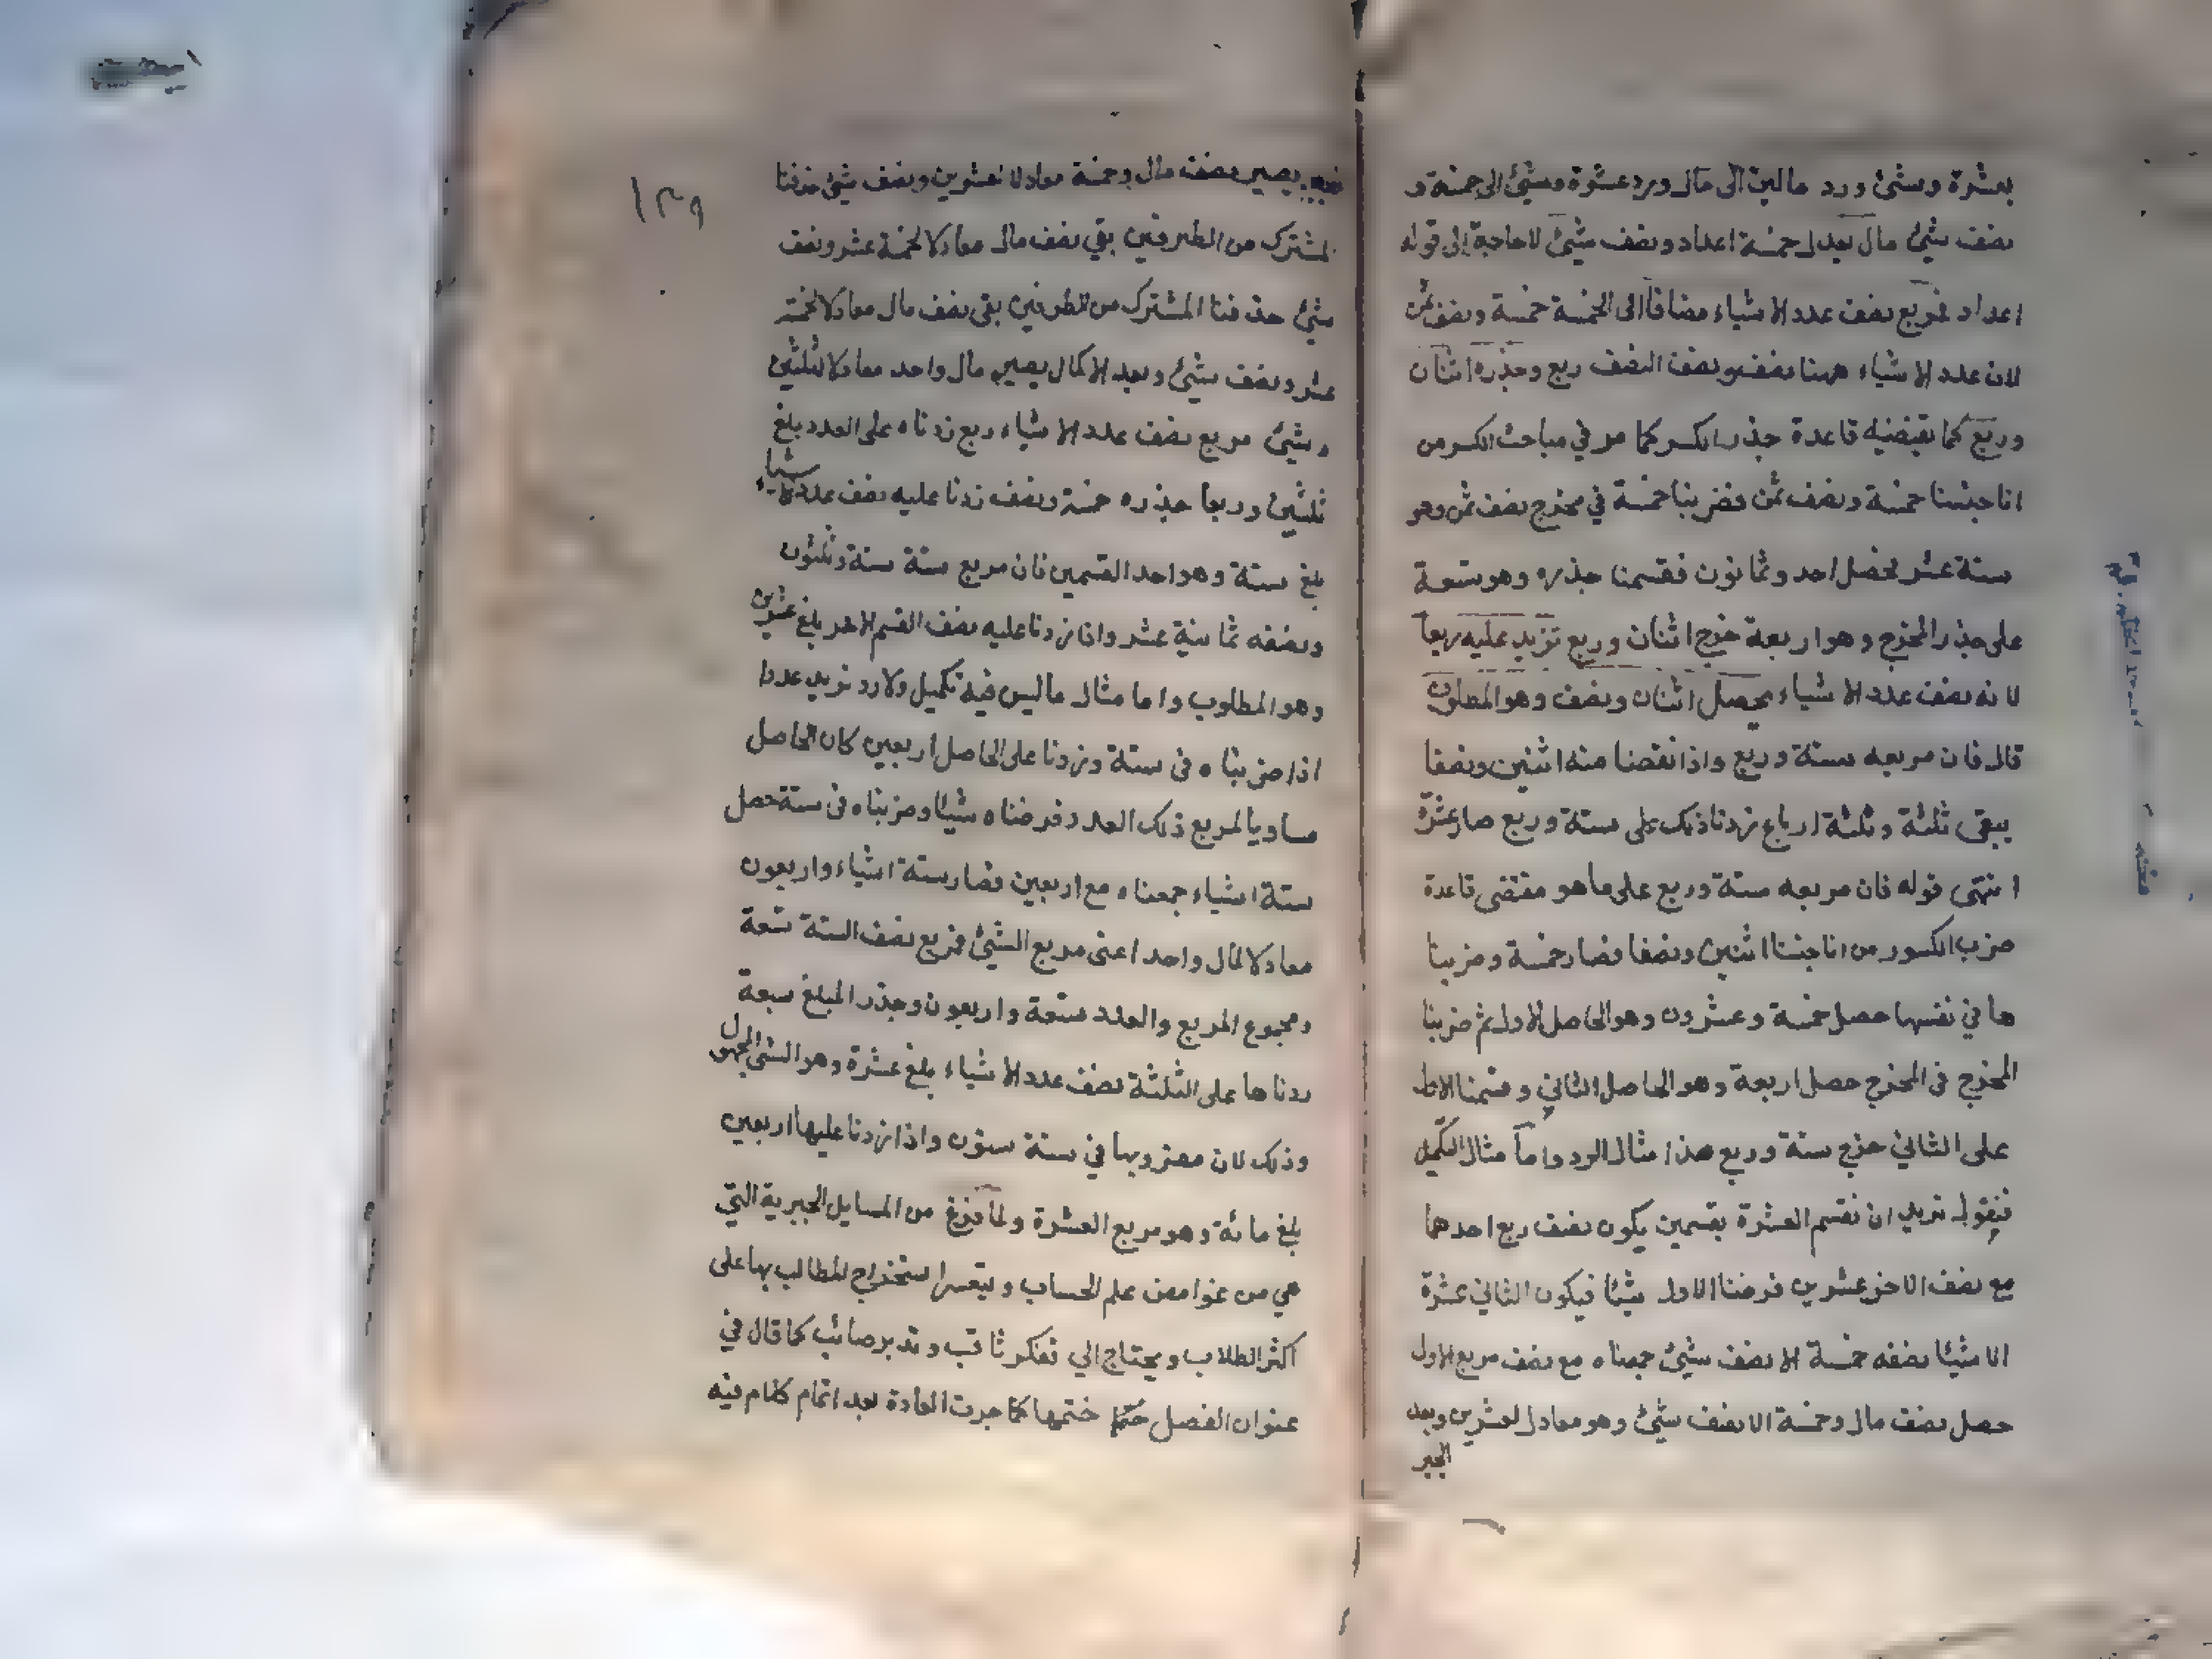 بعشرة وشئ ورد مالين الى مال ورد عشرة وشئ الى خمسة و
نصف شئ مال يعدل خمسة اعداد ونصف شئ لا حاجة الى قوله
اعداد فربع نصف عدد الاشياء مضافا الى الخمسة خمسة ونصف ثمن
لان عدد الاشياء ههنا نصف ونصف النصف ربع وجذره اثنان
وربع كما يقتضيه قاعدة جذر الكسر كما مر في مباحث الكسر من
انا جنسنا خمسة ونصف ثمن فضربنا خمسة في مخرج نصف ثمن وهو
ستة عشر يحصل احد وثمانون فقسمنا جذره وهو تسعة
على جذر المخرج وهو اربعة خرج اثنان وربع تزيد عليه ربعا
لانه نصف عدد الاشياء يحصل اثنان ونصف وهو المطلوب
قال فان مربعه ستة وربع واذا نقصنا منه اثنين ونصفا
يبقى ثلثة وثلثة ارباع زدنا ذلك على ستة وربع صار عشرة
انتهى قوله فان مربعه ستة وربع على ما هو مقتضى قاعدة
ضرب الكسور من انا جنسنا اثنين ونصفا فصار خمسة وضربنا
ها في نفسها حصل خمسة وعشرون وهو الحاصل الاول ثم ضربنا
المخرج في المخرج حصل اربعة وهو الحاصل الثاني وقسمنا الاول
على الثاني خرج ستة وربع هذا مثال الرد واما مثال التكميل
فنقول نريد ان نقسم العشرة بقسمين يكون نصف ربع احدهما
مع نصف الاخر عشرين فرضنا الاول شيئا فيكون الثاني عشرة
الا شيئا نصفه خمسة الا نصف شئ جمعناه مع نصف مربع الاول
حصل نصف مال وخمسة الا نصف شئ وهو معادل لعشرين وبعد
الجبر
١٣٩
يصير نصف مال وخمسة معادلا لعشرين ونصف شئ حذفنا
المشترك من الطرفين بقي نصف مال معادلا لخمسة عشر ونصف
شئ حذفنا المشترك من الطرفين بقى نصف مال معادلا لخمسة
عشر ونصف شئ وبعد الاكمال يصير مال واحد معادلا لثلثين
وشئ مربع نصف عدد الاشياء ربع زدناه على العدد بلغ
ثلثين وربعا جذره خمسة ونصف زدنا عليه نصف عدد الاشياء
بلغ ستة وهو احد القسمين فان مربع ستة ستة وثلثون
ونصفه ثمانية عشر واذا زدنا عليه نصف القسم الاخر بلغ عشرين
وهو المطلوب واما مثال ما ليس فيه تكميل ولا رد نريد عددا
اذا ضربناه في ستة وزدنا على الحاصل اربعين كان الحاصل
مساويا لمربع ذلك العدد فرضناه شيئا وضربناه في ستة حصل
ستة اشياء جمعناه مع اربعين فصار ستة اشياء واربعون
معادلا لمال واحد اعنى مربع الشئ فربع نصف الستة تسعة
ومجموع المربع والعدد تسعة واربعون وجذر المبلغ سبعة
زدناها على الثلثة نصف عدد الاشياء بلغ عشرة وهو الشئ المجهول
وذلك لان مضروبها في ستة ستون واذا زدنا عليها اربعين
بلغ مائة وهو مربع العشرة ولما فرغ من المسايل الجبرية التي
هي من غوامض علم الحساب ويتعسر استخراج المطالب بها على
اكثر الطلاب ويحتاج الي تفكر ثاقب وتدبر صائب كما قال في
عنوان الفصل ختمها كما جرت العادة بعد اتمام كلام فيه